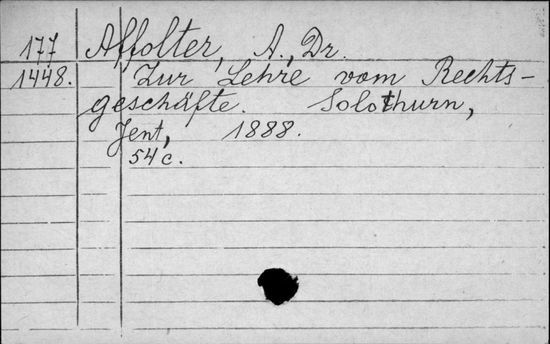 177 Affolter, A., Dr.
1448. Zur Lehre vom Rechts-
geschäfte. Solothurn,
Jent, 1888.
54 c.